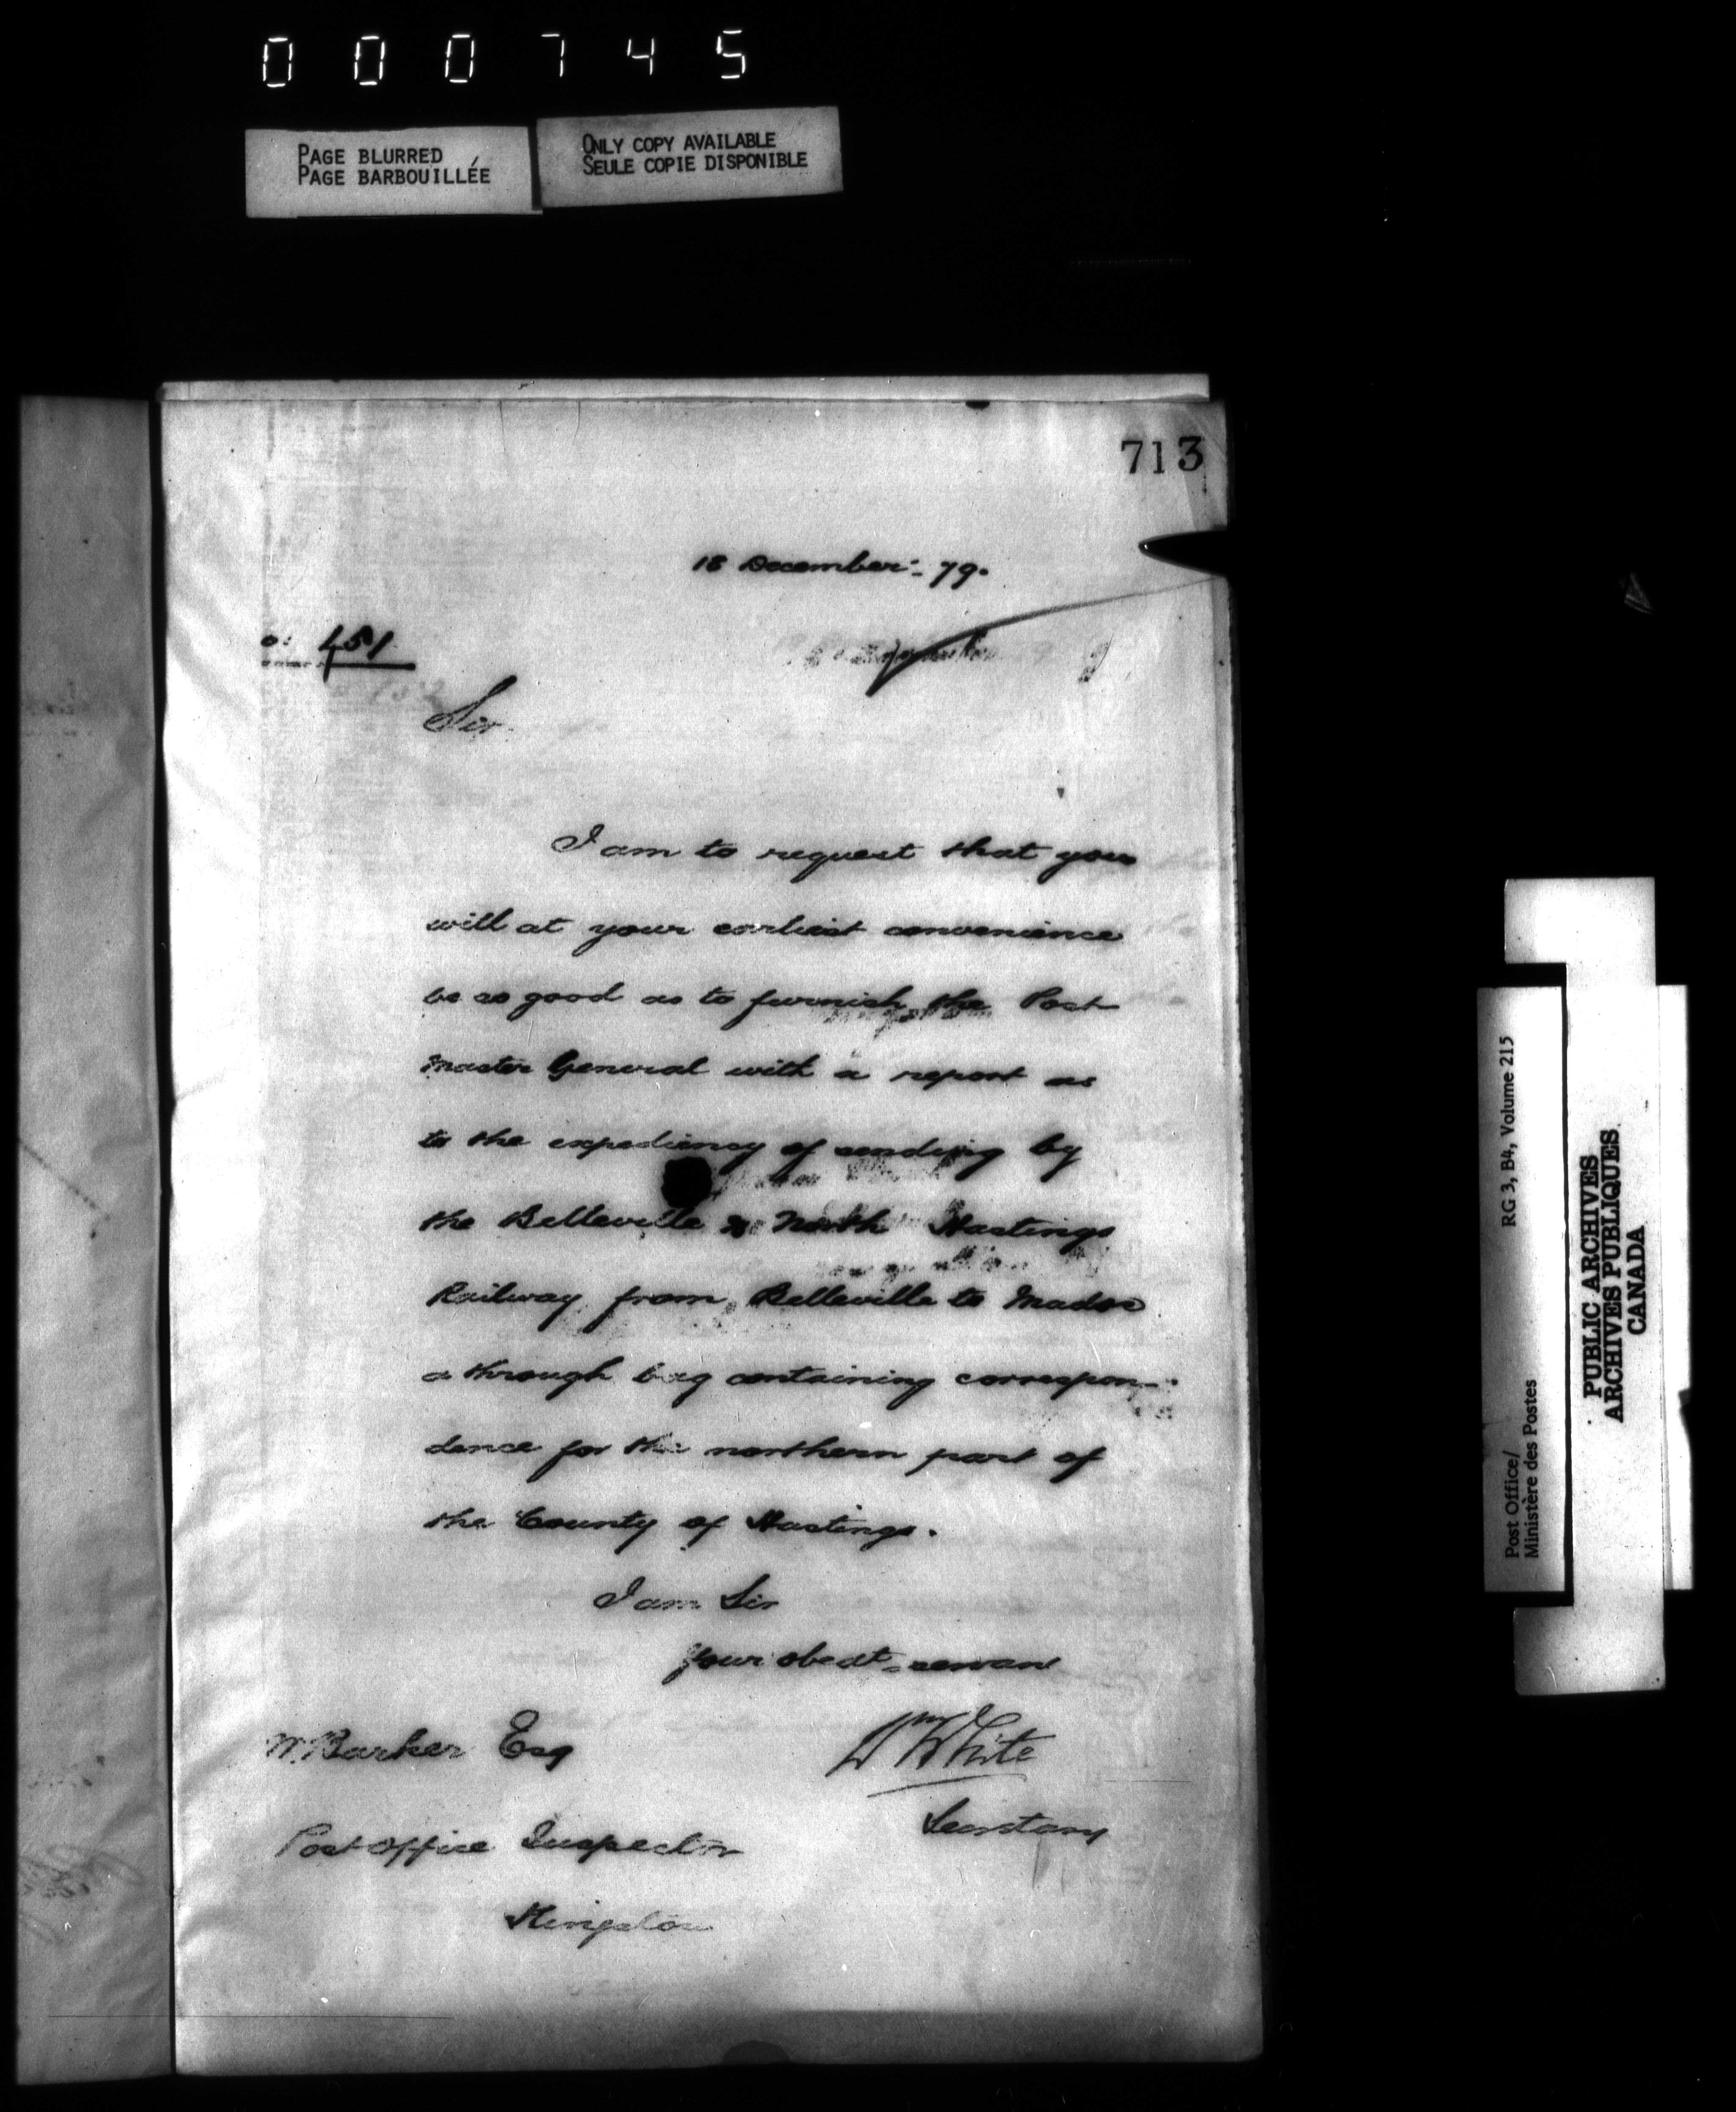 000745
PAGE BLURRED
PAGE BARBOUILLÉE
ONLY COPY AVAILABLE
SEULE COPIE DISPONIBLE
713
18 December - 79.
451
Sir.
I am to request that you
will at your earliest convenience
be so good as to furnish the Post
master General with a report as
to the expediency of sending by
the Belleville & North Hastings
Railway from Belleville to Madoc
a through bag containing correspon-
dence for the northern part of
the County of Hastings.
I am Sir
Your obedt servant
Wm White
Secretary
Barker Esq
Post Office Inspector
Kingston
RG 3, B4, Volume 215
Post Office/
Ministère des Postes
PUBLIC ARCHIVES
ARCHIVES PUBLIQUES
CANADA